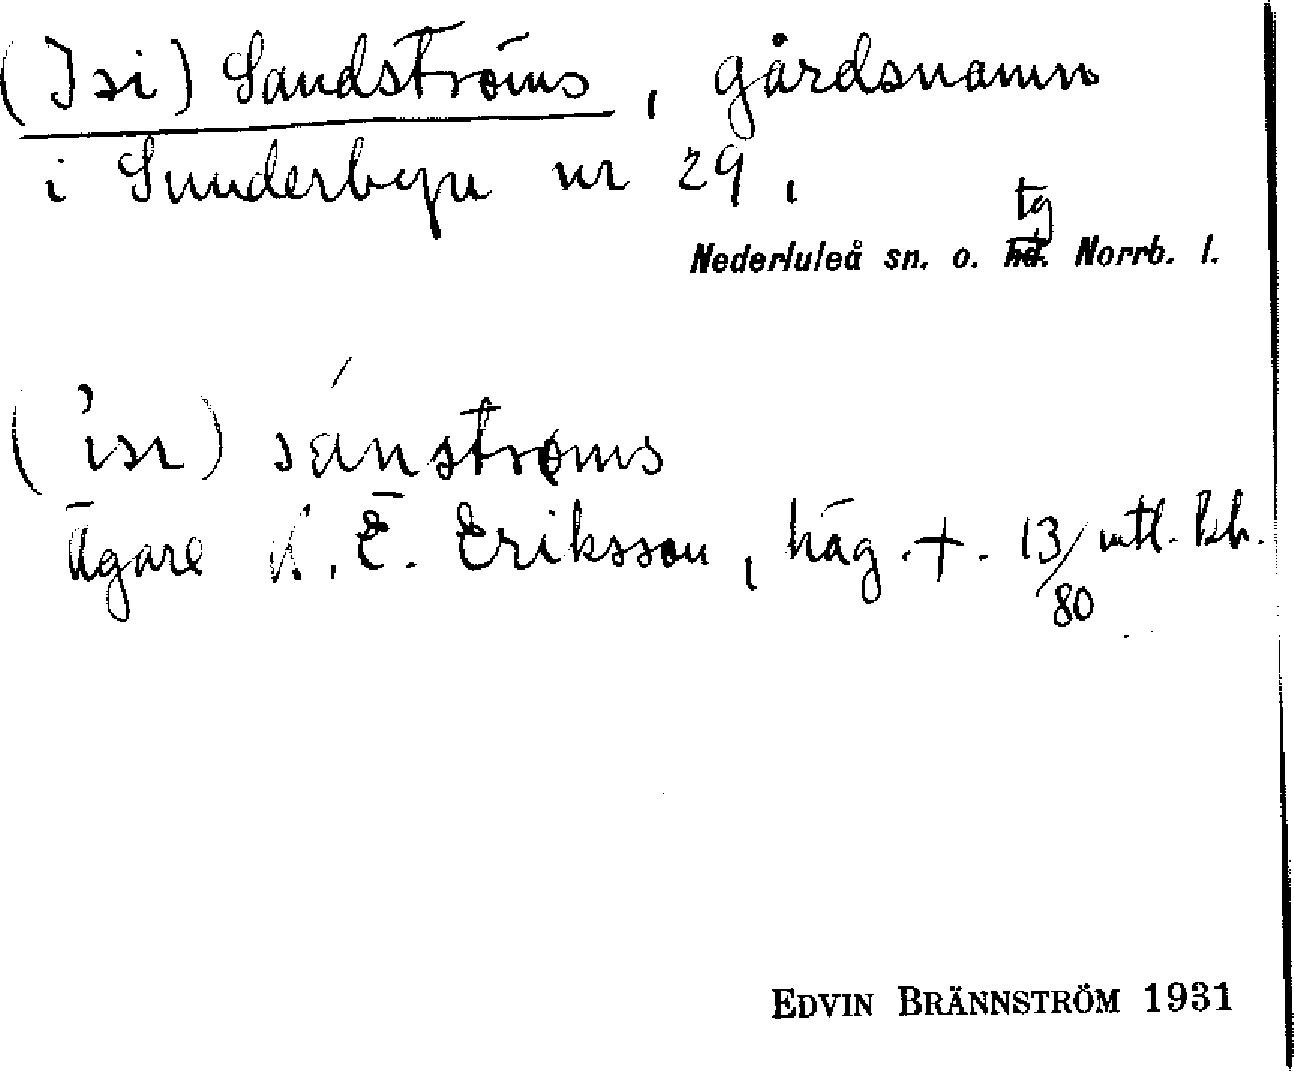 (Isi) Sandströms, gårdsnamn
i Sunderbyn nr 29,
tg
Nederluleå sn. o. hd. Norrb. l.
(ʼisı) sánstrøms
Ägare K. E. Eriksson, häg. +. 13/80 mtl. kh.
EDVIN BRÄNNSTRÖM 1931